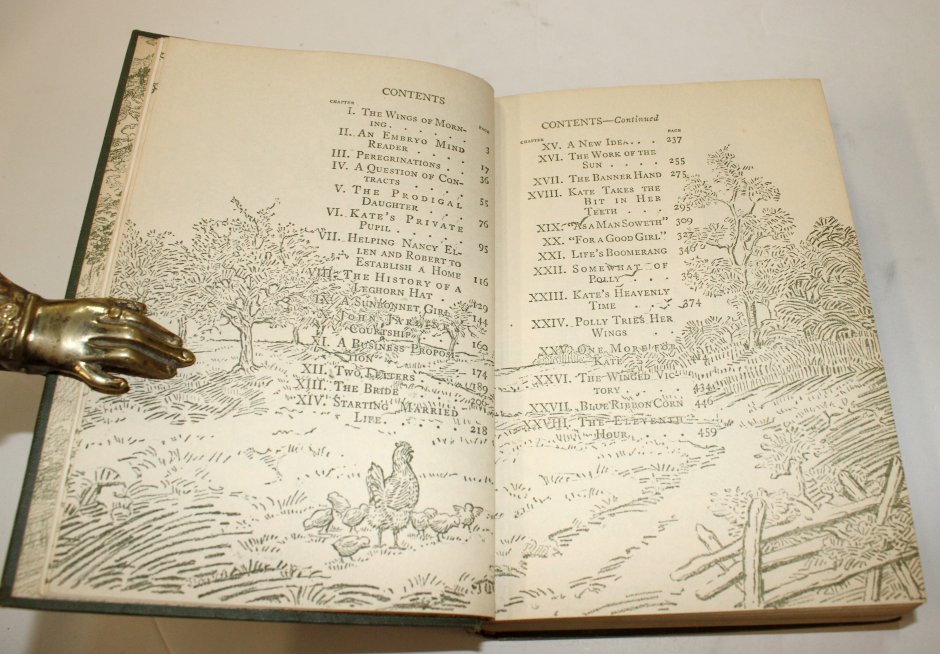 CONTENTS
CHAPTER PAGE
I. THE WINGS OF MORN-
ING . . . . . . 3
II. AN EMBRYO MIND
READER . . . . 17
III. PEREGRINATIONS . . . 36
IV. A QUESTION OF CON-
TRACTS . . . . 55
V. THE PRODIGAL
DAUGHTER . . . 76
VI. KATE'S PRIVATE
PUPIL . . . . . 95
VII. HELPING NANCY EL-
LEN AND ROBERT TO
ESTABLISH A HOME 116
VIII. THE HISTORY OF A
LEGHORN HAT . . 129
IX. A SUNBONNET GIRL 144
X. JOHN JARDINE'S
COURTSHIP . . . 160
XI. A BUSINESS PROPOSI-
TION . . . . 174
XII. TWO LETTERS . . . 189
XIII. THE BRIDE . . . 206
XIV. STARTING MARRIED
LIFE . . . . 218
CONTENTS—Continued
CHAPTER PAGE
XV. A NEW IDEA . . . 237
XVI. THE WORK OF THE
SUN . . . . 255
XVII. THE BANNER HAND 275
XVIII. KATE TAKES THE
BIT IN HER
TEETH . . . 295
XIX. "AS A MAN SOWETH" 309
XX. "FOR A GOOD GIRL" 327
XXI. LIFE'S BOOMERANG 346
XXII. SOMEWHAT OF
POLLY . . . 364
XXIII. KATE'S HEAVENLY
TIME . . . 374
XXIV. POLLY TRIES HER
WINGS . . .
XXV. ONE MORE FOR
KATE
XXVI. THE WINGED VIC-
TORY . . . 434
XXVII. BLUE RIBBON CORN 446
XXVIII. THE ELEVENTH
HOUR . . . 459